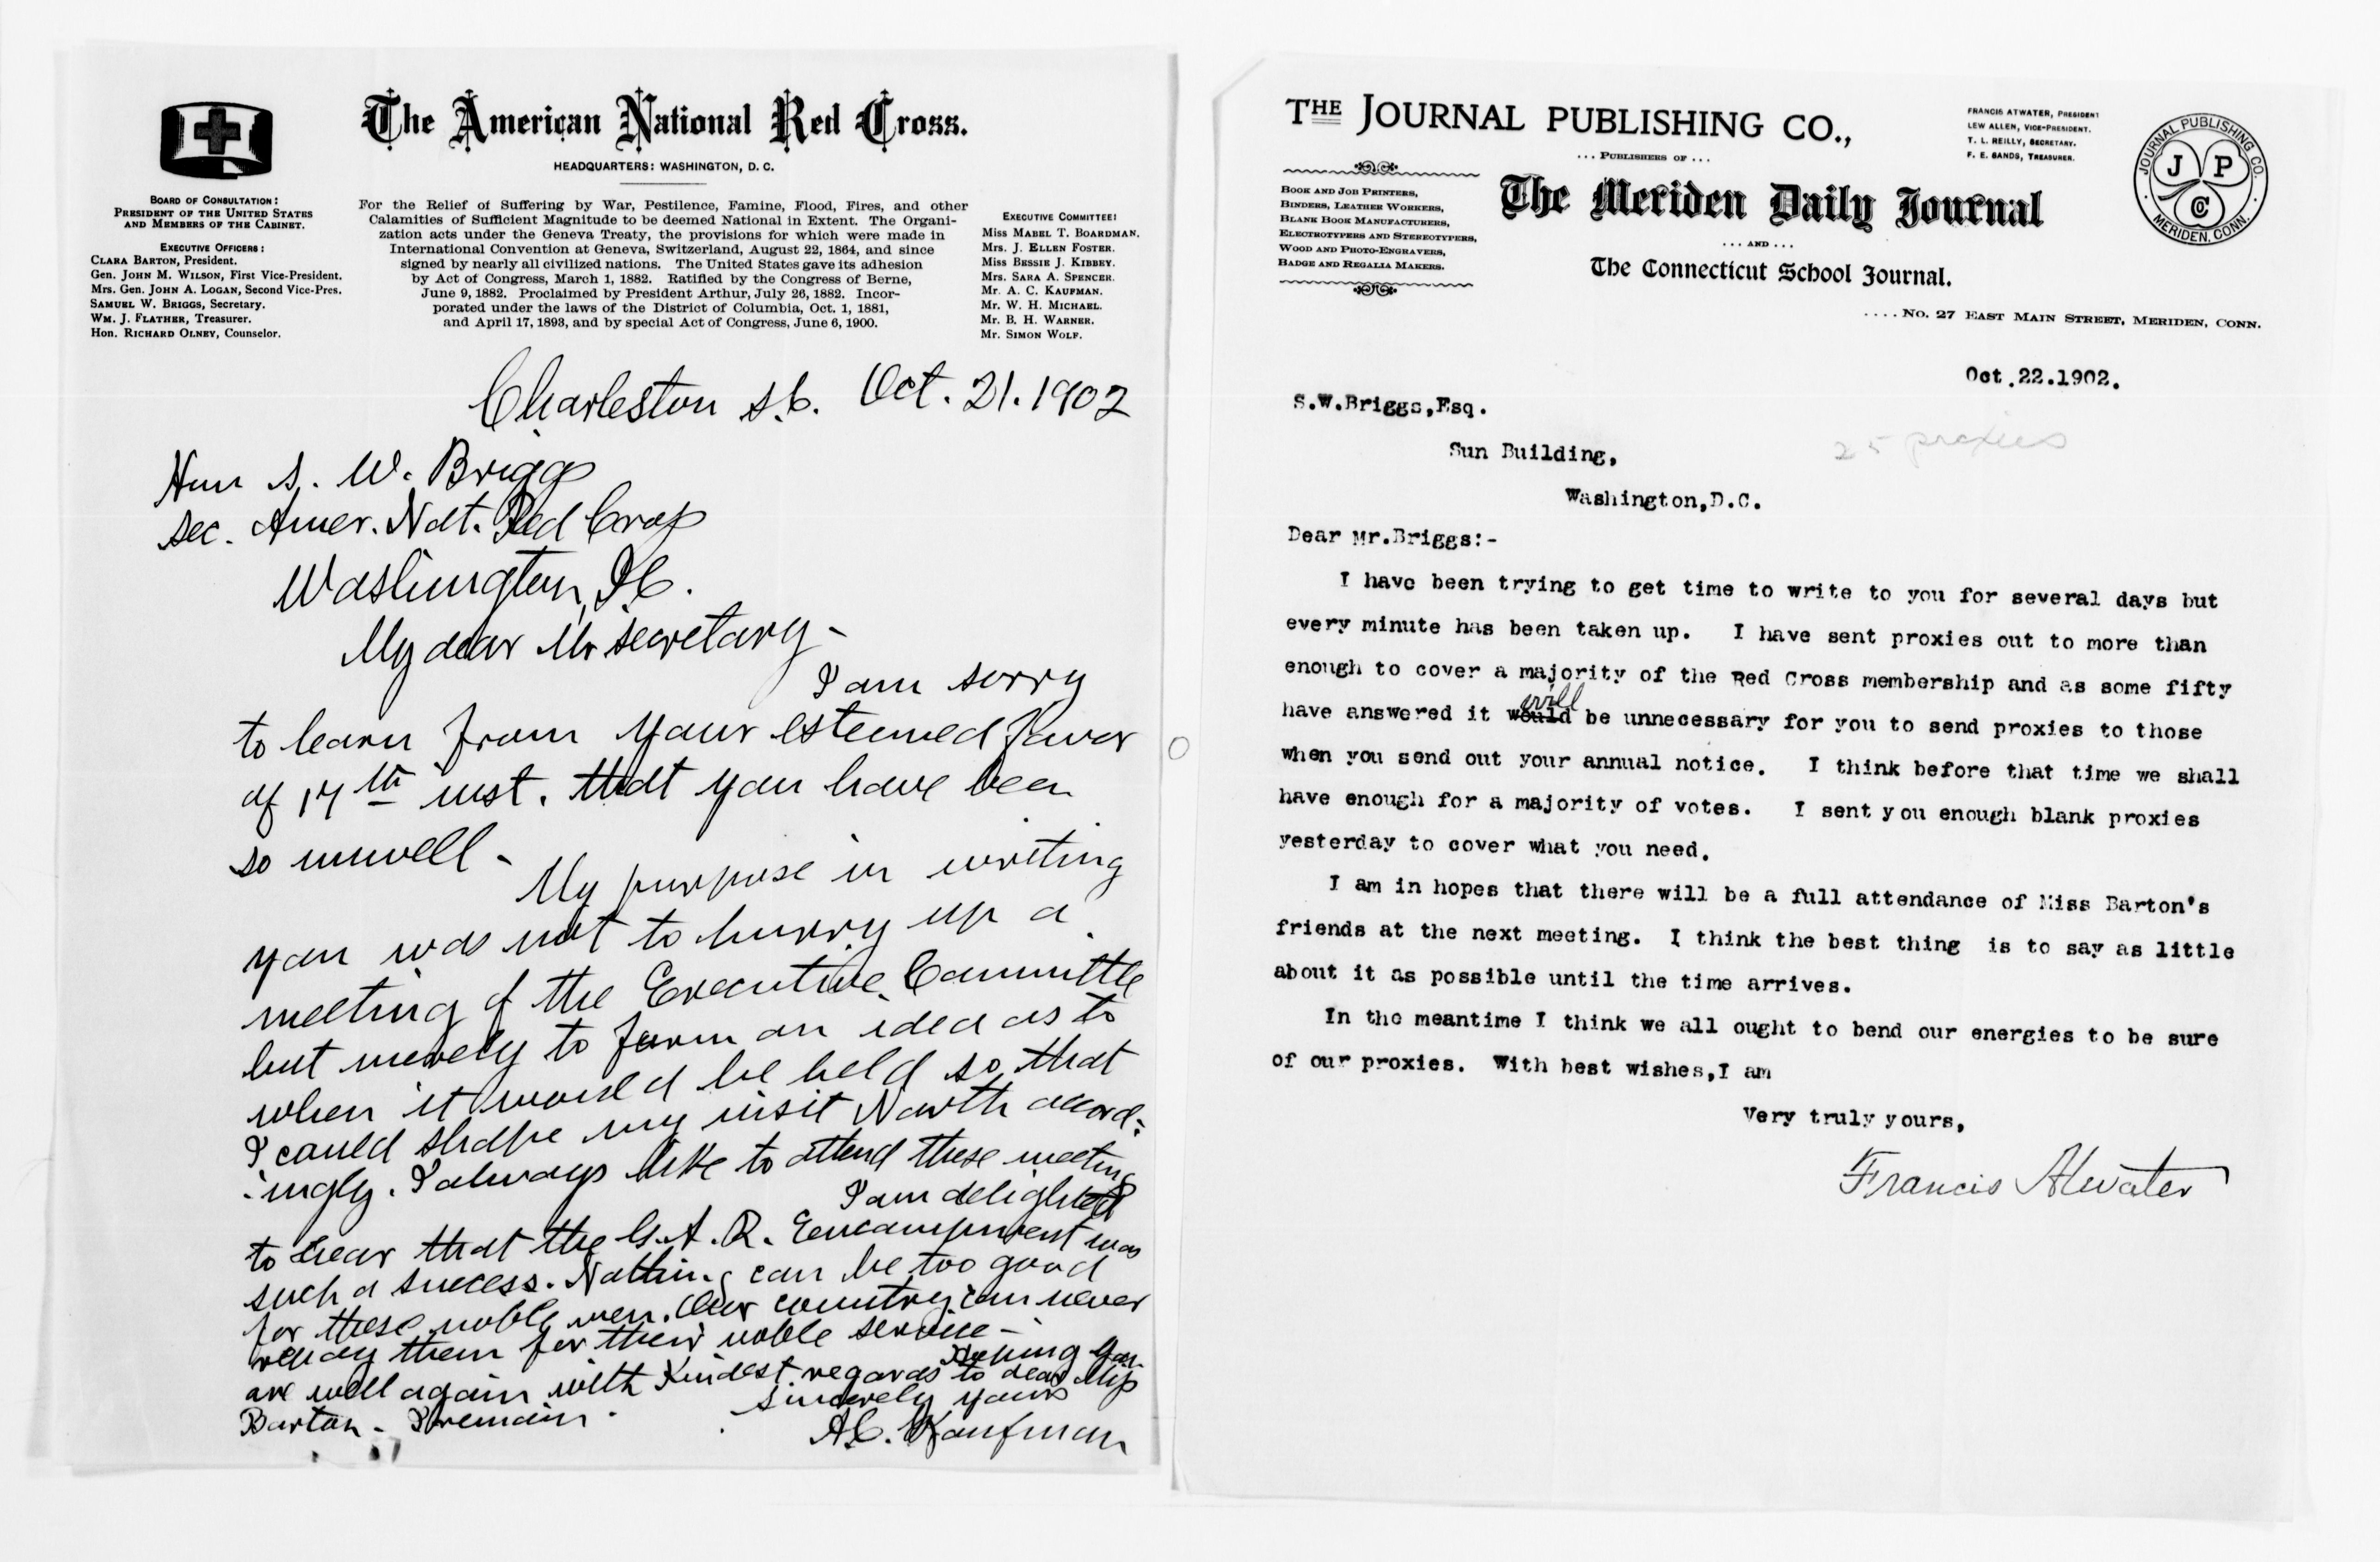 The American National Red Cross.
HEADQUARTERS: WASHINGTON, D. C.
BOARD OF CONSULTATION:
PRESIDENT OF THE UNITED STATES
AND MEMBERS OF THE CABINET.
EXECUTIVE OFFICERS:
CLARA BARTON, President.
Gen. JOHN M. WILSON, First Vice-President.
Mrs. Gen. JOHN A. LOGAN, Second Vice-Pres.
SAMUEL W. BRIGGS, Secretary.
WM. J. FLATHER, Treasurer.
Hon. RICHARD OLNEY, Counselor.
For the Relief of Suffering by War, Pestilence, Famine, Flood, Fires, and other
Calamities of Sufficient Magnitude to be deemed National in Extent. The Organi-
zation acts under the Geneva Treaty, the provisions for which were made in
International Convention at Geneva, Switzerland, August 22, 1864, and since
signed by nearly all civilized nations. The United States gave its adhesion
by Act of Congress, March 1, 1882. Ratified by the Congress of Berne,
June 9, 1882. Proclaimed by President Arthur, July 26, 1882. Incor-
porated under the laws of the District of Columbia, Oct. 1, 1881,
and April 17, 1893, and by special Act of Congress, June 6, 1900.
EXECUTIVE COMMITTEE:
Miss MABEL T. BOARDMAN.
Mrs. J. ELLEN FOSTER.
Miss BESSIE J. KIBBEY.
Mrs. SARA A. SPENCER.
Mr. A. C. KAUFMAN.
Mr. W. H. MICHAEL.
Mr. B. H. WARNER.
Mr. SIMON WOLF.
Charleston S.C. Oct. 21. 1902
Hon S. W. Briggs
Sec. Amer. Nat. Red Cross
Washington, D.C.
My dear Mr Secretary -
I am sorry
to learn from your esteemed favor
of 17th inst. that you have been
so unwell -
My purpose in writing
you was not to hurry up a
meeting of the Executive Committee
but merely to form an idea as to
when it would be held so that
I could shape my visit North accord-
-ingly. I always like to attend these meetings
I am delighted
to hear that the G.A.R. Encampment was
such a success. Nothing can be too good
for these noble men. Our country can never
repay them for their noble service -
Hoping you
are well again with kindest regards to dear Miss
Barton - I remain.
Sincerely yours
A.C. Kaufman
THE JOURNAL PUBLISHING CO.,
... PUBLISHERS OF ...
The Meriden Daily Journal
... AND ...
The Connecticut School Journal.
BOOK AND JOB PRINTERS,
BINDERS, LEATHER WORKERS,
BLANK BOOK MANUFACTURERS,
ELECTROTYPERS AND STEREOTYPERS,
WOOD AND PHOTO-ENGRAVERS,
BADGE AND REGALIA MAKERS.
FRANCIS ATWATER, PRESIDENT
LEW ALLEN, VICE-PRESIDENT.
T. L. REILLY, SECRETARY.
F. E. SANDS, TREASURER.
JOURNAL PUBLISHING CO.
J P CO
MERIDEN, CONN.
.... NO. 27 EAST MAIN STREET, MERIDEN, CONN.
Oct.22.1902.
S.W.Briggs,Esq.
25 proxies
Sun Building,
Washington,D.C.
Dear Mr.Briggs:-
I have been trying to get time to write to you for several days but
every minute has been taken up. I have sent proxies out to more than
enough to cover a majority of the Red Cross membership and as some fifty
have answered it would will be unnecessary for you to send proxies to those
when you send out your annual notice. I think before that time we shall
have enough for a majority of votes. I sent you enough blank proxies
yesterday to cover what you need.
I am in hopes that there will be a full attendance of Miss Barton's
friends at the next meeting. I think the best thing is to say as little
about it as possible until the time arrives.
In the meantime I think we all ought to bend our energies to be sure
of our proxies. With best wishes,I am
Very truly yours,
Francis Atwater